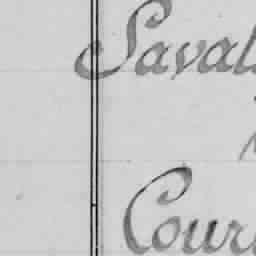 Saval
Cour